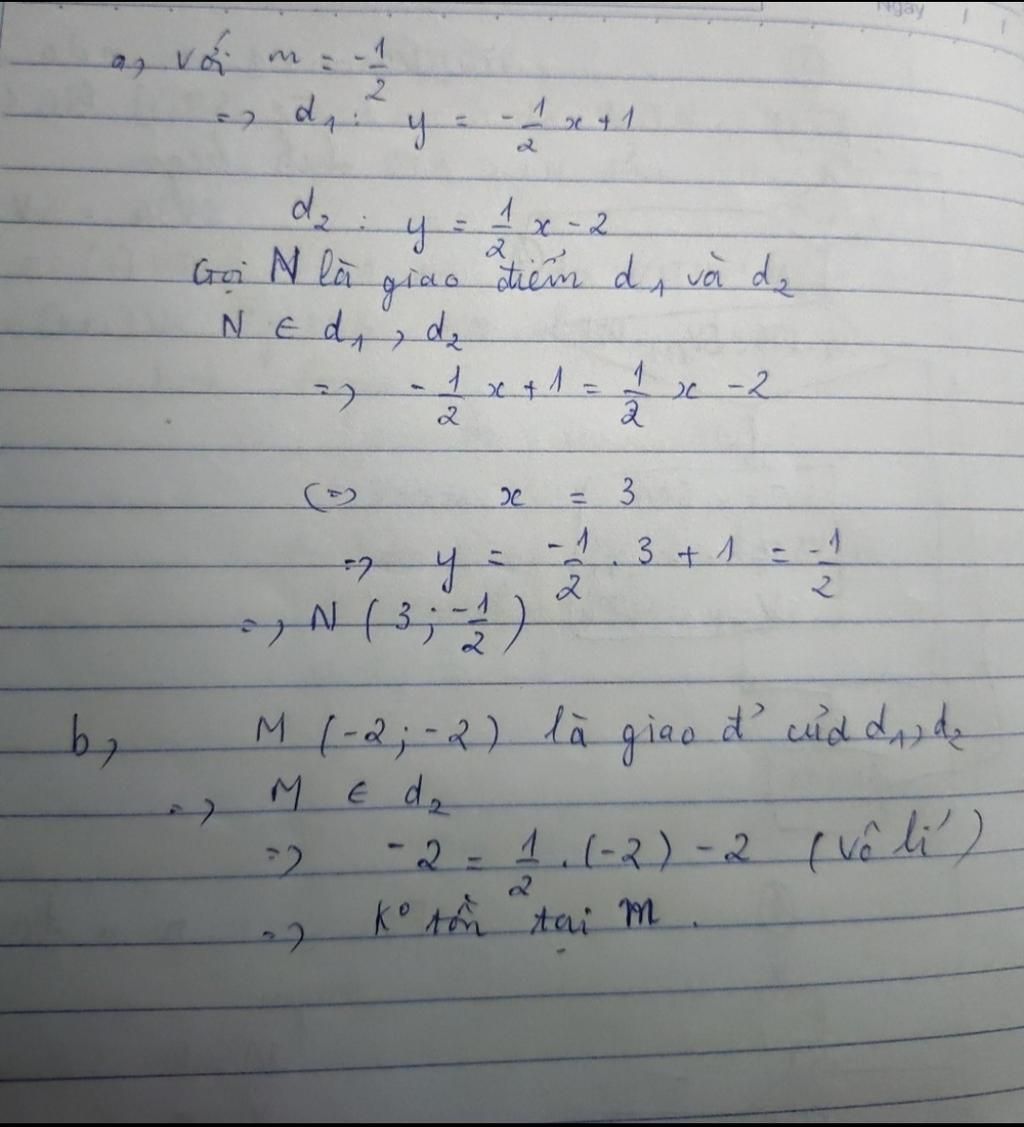 Ngày / /
a, với m = -1/2
=> d₁ : y = -1/2 x + 1
d₂ : y = 1/2 x - 2
Gọi N là giao điểm d₁ và d₂
N ∈ d₁, d₂
=> -1/2 x + 1 = 1/2 x - 2
(=> x = 3
=> y = -1/2 . 3 + 1 = -1/2
=> N (3; -1/2)
b, M (-2; -2) là giao đ' của d₁, d₂
=> M ∈ d₂
=> -2 = 1/2 . (-2) - 2 (vô lí)
=> K° tồn tại m.